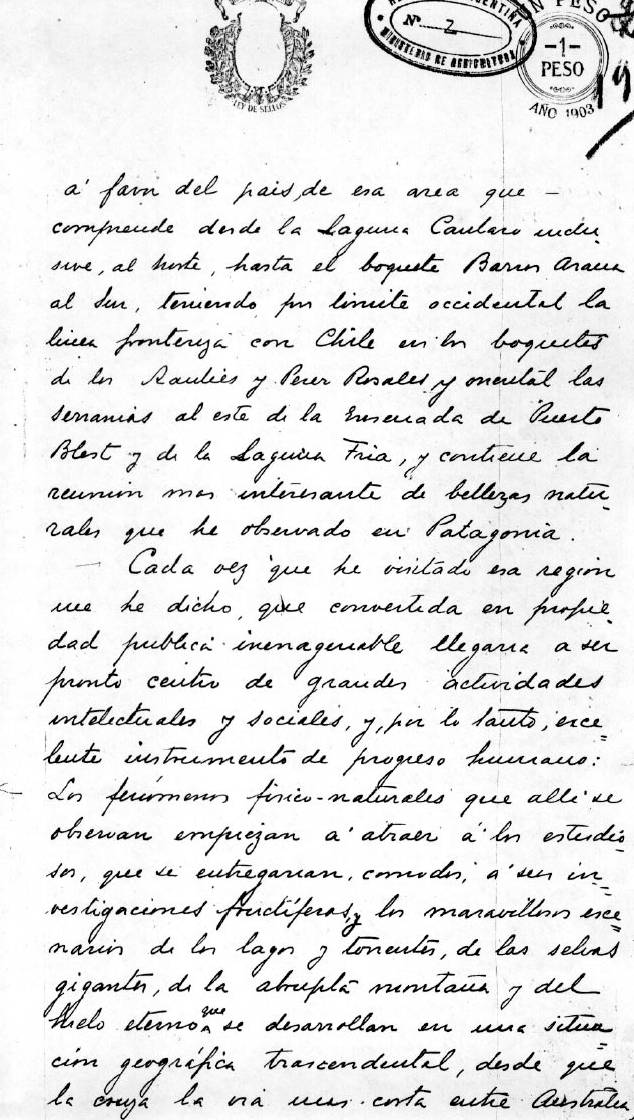 LEY DE SELLOS
ARGENTINA
Nº 2
MINISTERIO DE AGRICULTURA
UN PESO
-1-
PESO
AÑO 1903
á favor del pais, de esa area que -
comprende desde la Laguna Cantaro inclu-
sive, al norte, hasta el boquete Barros Arana
al Sur, teniendo por limite occidental la
linea fronteriza con Chile en los boquetes
de los Raulies y Perez Rosales, y oriental las
serranias al este de la Ensenada de Puerto
Blest y de la Laguna Fria, y contiene la
reunion mas interesante de bellezas natu-
rales que he observado en Patagonia.
- Cada vez que he visitado esa region
me he dicho, que convertida en propie-
dad publica inenagenable llegaria a ser
pronto centro de grandes actividades
intelectuales y sociales, y, por lo tanto, exce=
lente instrumento de progreso humano:
Los fenómenos fisico-naturales que alli se
observan empiezan á atraer á los estudio=
sos, que se entregarian, comodos, á sus in=
vestigaciones fructíferas, y los maravillosos esce=
narios de los lagos y torrentes, de las selvas
gigantes, de la abrupta montaña y del
hielo eterno que se desarrollan en una situa
ción geográfica trascendental, desde que
la cruza la via mas corta entre Australia